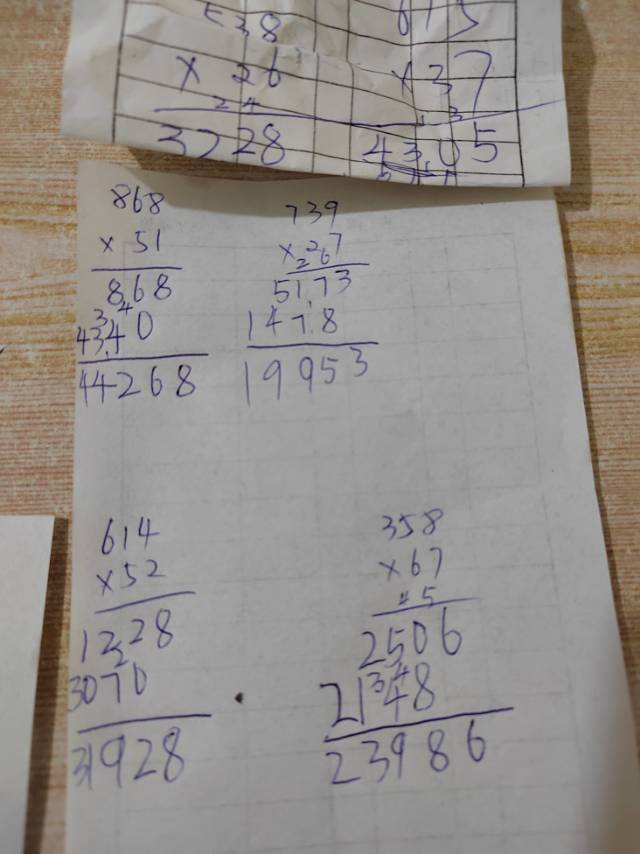 38 615
× 26 × 37
24 3
3228 4305
868
× 51
868
4340
44268
739
× 27
26
5173
1478
19953
614
×52
1228
3070
31928
358
×67
45
2506
2148
23986